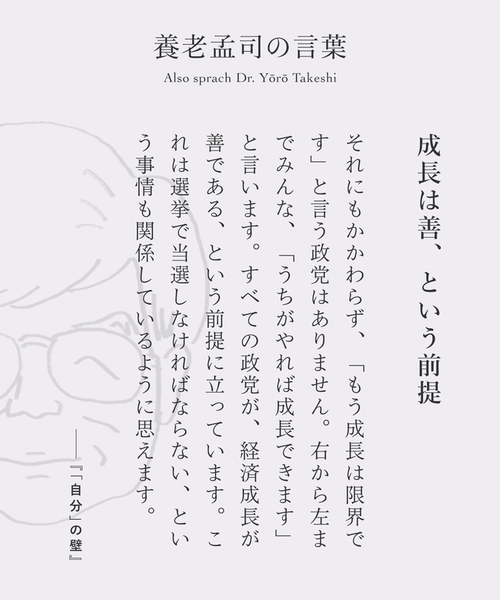 養老孟司の言葉
Also sprach Dr. Yōrō Takeshi
成長は善、という前提
それにもかかわらず、「もう成長は限界で
す」と言う政党はありません。右から左ま
でみんな、「うちがやれば成長できます」
と言います。すべての政党が、経済成長が
善である、という前提に立っています。こ
れは選挙で当選しなければならない、とい
う事情も関係しているように思えます。
——『「自分」の壁』